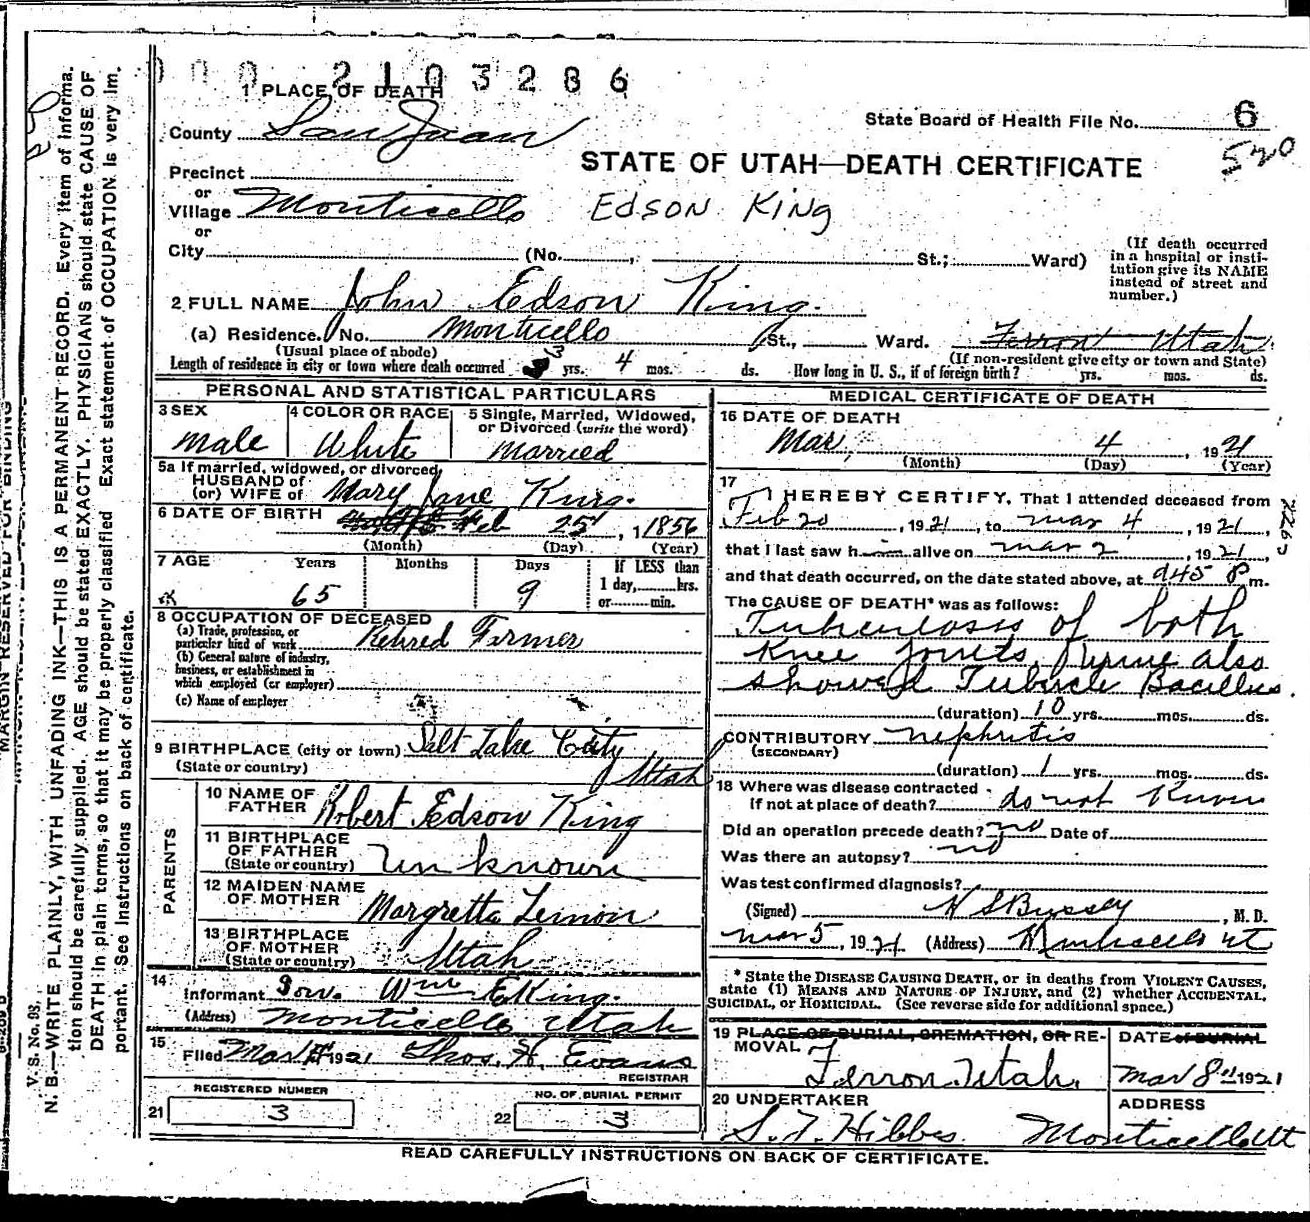 000 2103286
1 PLACE OF DEATH
County San Juan
State Board of Health File No. 6
520
Precinct
STATE OF UTAH—DEATH CERTIFICATE
or
Village Monticello
Edson King
or
City (No. , St.; Ward)
(If death occurred in a hospital or insti-
tution give its NAME instead of street and number.)
2 FULL NAME John Edson King.
(a) Residence. No. Monticello St., Ward. Ferron Utah.
(Usual place of abode) (If non-resident give city or town and State)
Length of residence in city or town where death occurred 3 yrs. 4 mos. ds. How long in U. S., if of foreign birth? yrs. mos. ds.
PERSONAL AND STATISTICAL PARTICULARS
3 SEX
male
4 COLOR OR RACE
White
5 Single, Married, Widowed, or Divorced (write the word)
Married
5a If married, widowed, or divorced
HUSBAND of
(or) WIFE of Mary Jane King.
6 DATE OF BIRTH Feb 25, 1856
(Month) (Day) (Year)
7 AGE Years Months Days If LESS than
1 day, hrs.
or min.
65 9
8 OCCUPATION OF DECEASED
(a) Trade, profession, or
particular kind of work Retired Farmer
(b) General nature of industry,
business, or establishment in
which employed (or employer)
(c) Name of employer
9 BIRTHPLACE (city or town) Salt Lake City
(State or country) Utah
PARENTS
10 NAME OF FATHER Robert Edson King
11 BIRTHPLACE OF FATHER
(State or country) Unknown
12 MAIDEN NAME OF MOTHER Margretta Lemon
13 BIRTHPLACE OF MOTHER
(State or country) Utah
14
Informant Son. Wm E King.
(Address) Monticello Utah
15
Filed Mar 1921 Thos. H. Evans
REGISTRAR
REGISTERED NUMBER
21 3
NO. OF BURIAL PERMIT
22 3
MEDICAL CERTIFICATE OF DEATH
16 DATE OF DEATH
Mar, 4, 1921
(Month) (Day) (Year)
17
I HEREBY CERTIFY, That I attended deceased from
Feb 20, 1921, to mar 4, 1921,
that I last saw h alive on mar 2, 1921,
and that death occurred, on the date stated above, at 45 P m.
The CAUSE OF DEATH* was as follows:
Tuberculosis of both
Knee joints, Urine also
showed Tubercle Bacillus.
(duration) 10 yrs. mos. ds.
CONTRIBUTORY nephritis
(SECONDARY)
(duration) 1 yrs. mos. ds.
18 Where was disease contracted
if not at place of death? do not Know
Did an operation precede death? no Date of
Was there an autopsy? no
Was test confirmed diagnosis?
(Signed) W S Bussey, M. D.
mar 5, 1921 (Address) Monticello ut
* State the DISEASE CAUSING DEATH, or in deaths from VIOLENT CAUSES,
state (1) MEANS AND NATURE OF INJURY, and (2) whether ACCIDENTAL,
SUICIDAL, or HOMICIDAL. (See reverse side for additional space.)
19 PLACE OF BURIAL, CREMATION, OR RE-
MOVAL
Ferron Utah.
DATE of BURIAL
Mar 8" 1921
20 UNDERTAKER
S. T. Hibbs.
ADDRESS
Monticello Ut
READ CAREFULLY INSTRUCTIONS ON BACK OF CERTIFICATE.
V. S. No. 83.
MARGIN RESERVED FOR BINDING
N. B.—WRITE PLAINLY, WITH UNFADING INK—THIS IS A PERMANENT RECORD. Every item of informa-
tion should be carefully supplied. AGE should be stated EXACTLY. PHYSICIANS should state CAUSE OF
DEATH in plain terms, so that it may be properly classified. Exact statement of OCCUPATION is very im-
portant. See instructions on back of certificate.